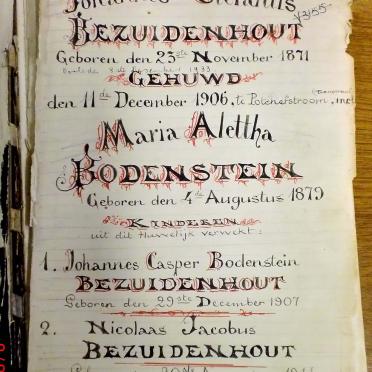 Johannes
BEZUIDENHOUT
Geboren den 23ste November 1871
GEHUWD
den 11de December 1906, te Potchefstroom, met
Maria Alettha
BODENSTEIN
Geboren den 4de Augustus 1879
KINDEREN
uit dit Huwelijk verwekt:
1. Johannes Casper Bodenstein
BEZUIDENHOUT
Geboren den 29ste December 1907
2. Nicolaas Jacobus
BEZUIDENHOUT